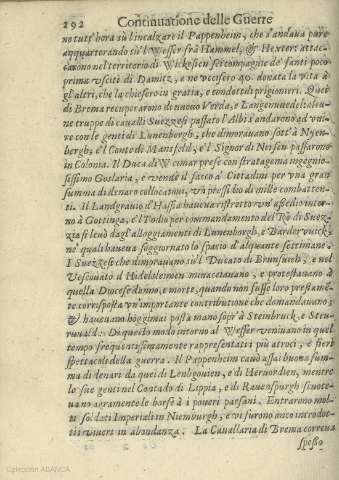 292 Continuatione delle Guerre
no tutt'hora sù l'incalzare il Pappenheim, che s'andaua pure
acquartorando sù'l Vvesser frà Hammel, & Hexter: attac-
carono nel territorio di Vvickesen sei compagnie de' fanti poco
prima vsciti di Damitz, e ne vccisero 40. donata la vita à
gl'altri, che la chiesero in gratia, e condotteli prigionieri. Quei
di Brema recuperarono di nuouo Verda, e Langeinuedel: alcu-
ne truppe di caualli Suezzesi passato l'Albi andarono ad vni-
re con le genti di Lunenborgh, che dimorauano sott'à Nyen-
bergh; e'l Conte di Mansfeld, e'l Signor di Niersen passarono
in Colonia. Il Duca di Vveimar prese con stratagema ingegno-
sissimo Goslaria, e vendè il sacco a' Cittadini per vna gran
summa di denaro collocatoui, vn pressidio di mille combatten-
ti. Il Landgrauio d'Hassia haueua ristretto vn'assedio intor-
no à Gottinga, e'l Todio per commandamento del Rè di Suez-
zia si leuò dagl'alloggiamenti di Lunenborgh, e Bardervvick,
ne' quali haueua soggiornato lo spacio d'alquante settimane.
I Suezzesi che dimorauano sù'l Ducato di Brunsuich, e nel
Vescouato d'Hidelsleimen minacciauano, e protestauano à
quella Diocese danno, e morte, quando non fusse loro presame-
te corrisposta vn'importante contributione che domandauano;
& haueuano hoggimai posta mano sopr'à Steinbruck, e Steu-
ruuald. Da questo modo intorno al Vvesser veniuano in quel
tempo frequentissimamente rappresentati i più atroci, e fieri
spettacole della guerra. Il Pappenheim cauò assai buona sum-
ma di denari da quei di Lenbgouien, e di Hernorden, mentre
le sue genti nel Contado di Lippia, e di Rauenspurgh scuote-
uano agramente le borse à i poueri paesani. Entrarono mol-
ti soldati Imperiali in Niemburgh, e vi furono anco introdot-
ti viueri in abondanza. La Cauallaria di Brema correua
spesso
Colección ABANCA